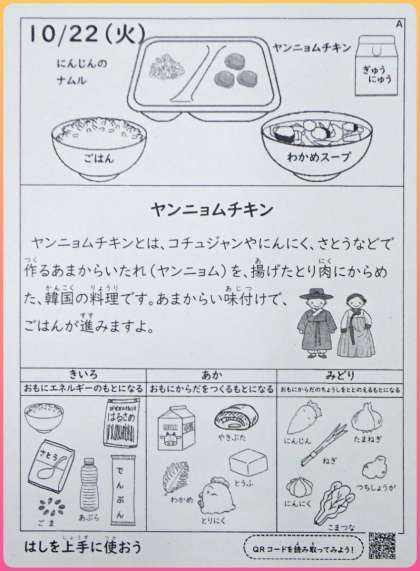 10/22(火)
A
にんじんの
ナムル
ヤンニョムチキン
ぎゅう
にゅう
ごはん
わかめスープ
ヤンニョムチキン
ヤンニョムチキンとは、コチュジャンやにんにく、さとうなどで
作るあまからいたれ(ヤンニョム)を、揚げたとり肉にからめ
た、韓国の料理です。あまからい味付けで、
ごはんが進みますよ。
きいろ
おもにエネルギーのもとになる
はるさめ
さとう
でんぷん
ごま
あぶら
あか
おもにからだをつくるもとになる
やきぶた
とうふ
わかめ
とりにく
みどり
おもにからだのちょうしをととのえるもとになる
にんじん
たまねぎ
ねぎ
つちしょうが
にんにく
こまつな
はしを上手に使おう
QRコードを読み取ってみよう!